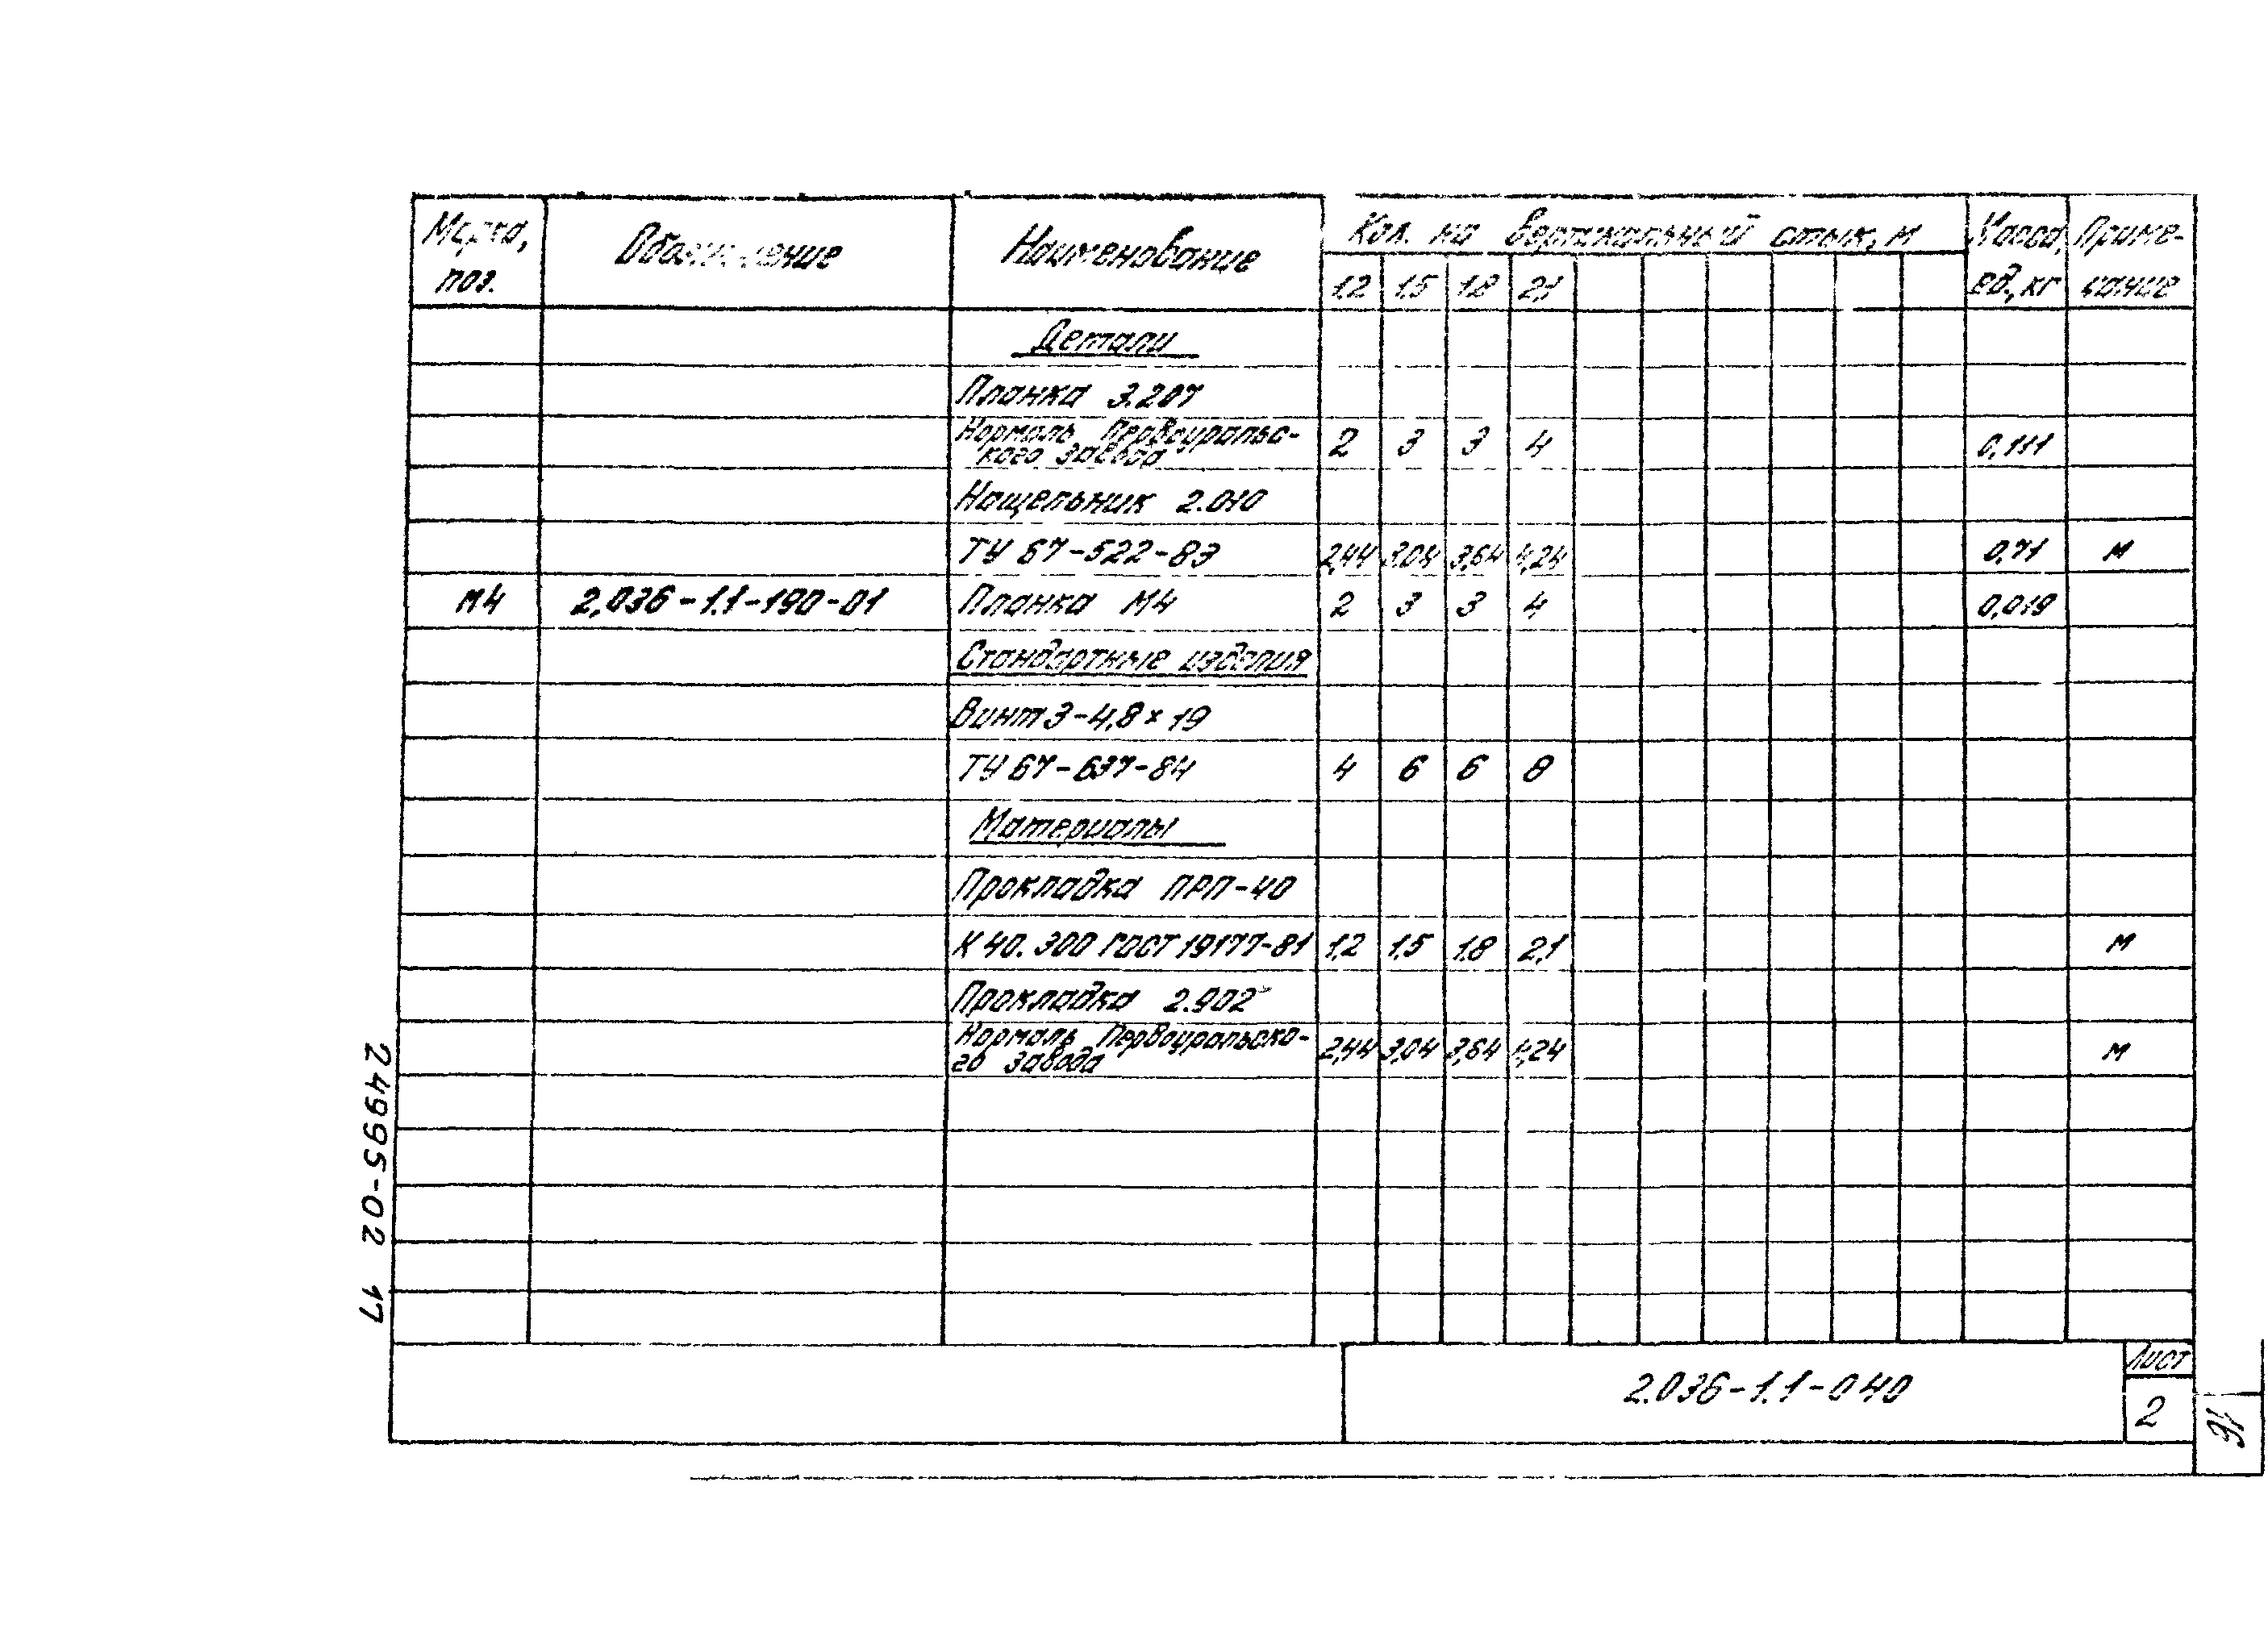 Марка, Обозначение Наименование Кол. на вертикальный стык, м Масса Приме-
поз. 1,2 1,5 1,8 2,1 ед., кг чание
Детали
Планка 3.207
Нормаль Первоуральс-
кого завода 2 3 3 4 0,111
Нащельник 2.010
ТУ 67-522-83 2,44 3,04 3,64 4,24 0,71 м
М4 2,036-1.1-190-01 Планка М4 2 3 3 4 0,019
Стандартные изделия
Винт 3-4,8×19
ТУ 67-637-84 4 6 6 8
Материалы
Прокладка ПРП-40
К 40.300 ГОСТ 19177-81 1,2 1,5 1,8 2,1 м
Прокладка 2.902
Нормаль Первоуральско-
го завода 2,44 3,04 3,64 4,24 м
24995-02 17
2.036-1.1-040
Лист
2
16